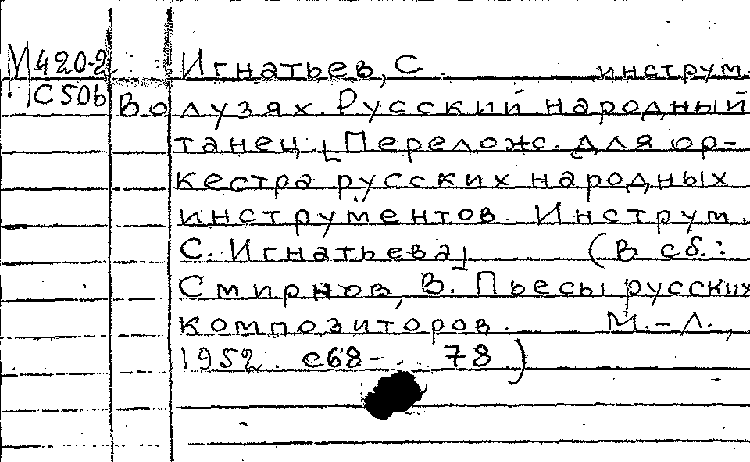 М420-2 Игнатьев, С. инструм.
С506 Во лузях. Русский народный
танец. [Перелож. для ор-
кестра русских народных
инструментов. Инструм.
С. Игнатьева] (В сб.:
Смирнов, В. Пьесы русских
композиторов. М.-Л.,
1952. с68-78)